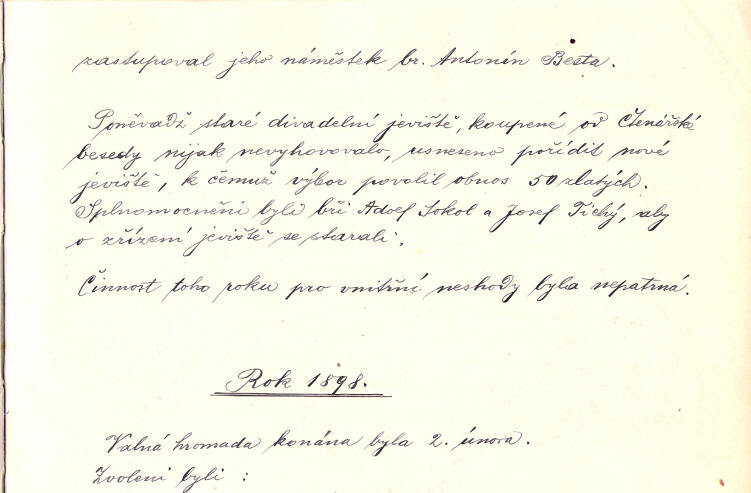 zastupoval jeho náměstek br. Antonín Bešta.
Poněvadž staré divadelní jeviště, koupené od Čtenářské
besedy nijak nevyhovovalo, usneseno poříditi nové
jeviště, k čemuž výbor povolil obnos 50 zlatých.
Splnomocněni byli bři Adolf Sokol a Josef Tichý, aby
o zřízení jeviště se starali.
Činnost toho roku pro vnitřní neshody byla nepatrná.
Rok 1898.
Valná hromada konána byla 2. února.
Zvoleni byli :